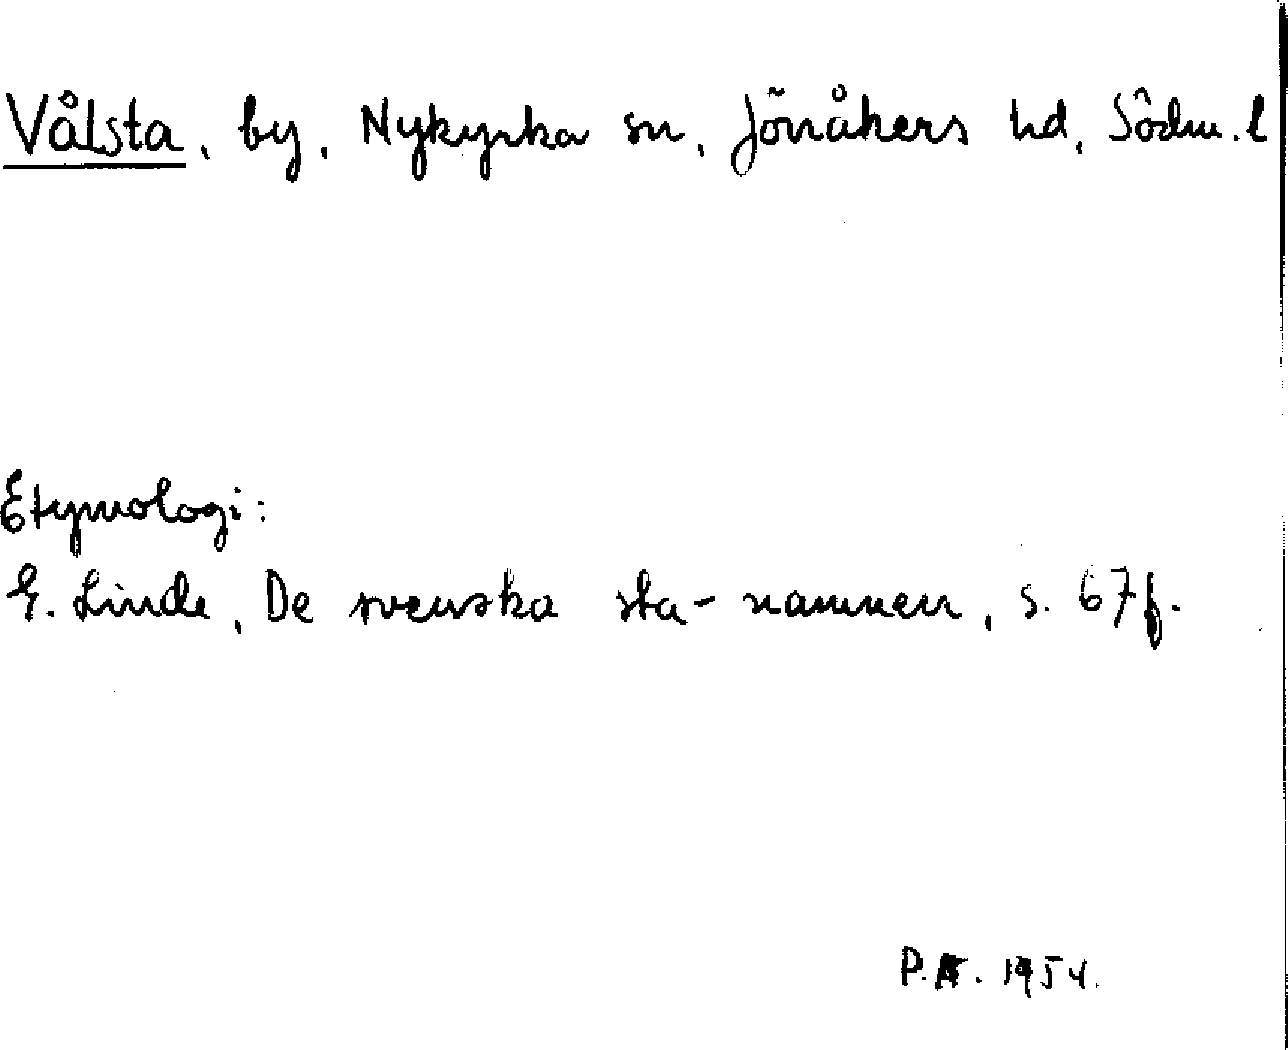 Vålsta, by, Nykyrka sn, Jönåkers hd, Södm. l
Etymologi:
G. Linde, De svenska sta-namnen, s. 67 f.
1954.